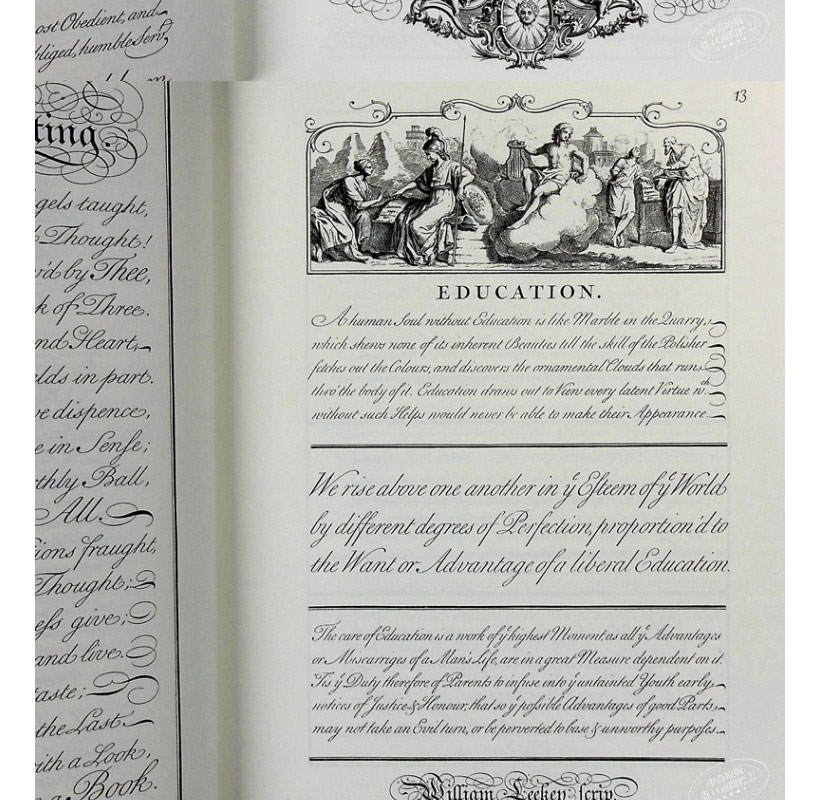 ost Obedient, and
bliged, humble Serv.
ting.
gels taught,
Thought!
'd by Thee,
k of Three.
nd Heart,
elds in part.
ve dispence,
e in Senſe;
thly Ball,
All.
ions fraught,
Thought;
eſs give;
and live.
taste;
the Last
ith a Look,
a Book.
13
EDUCATION.
A human Soul without Education is like Marble in the Quarry,
which shews none of its inherent Beauties till the skill of the Polisher
fetches out the Colours, and discovers the ornamental Clouds that runs
thro' the body of it. Education draws out to View every latent Virtue wch.
without such Helps would never be able to make their Appearance.
We rise above one another in ye Eſteem of ye World
by different degrees of Perfection, proportion'd to
the Want or Advantage of a liberal Education.
The care of Education is a work of ye highest Moment, as all ye Advantages
or Miscarriges of a Man's Life, are in a great Measure dependent on it.
'Tis ye Duty therefore of Parents to infuse into ye untainted Youth early
notices of Justice & Honour, that so ye poſsible Advantages of good Parts
may not take an Evil turn, or be perverted to base & unworthy purpoſes.
William Leekey scrip.